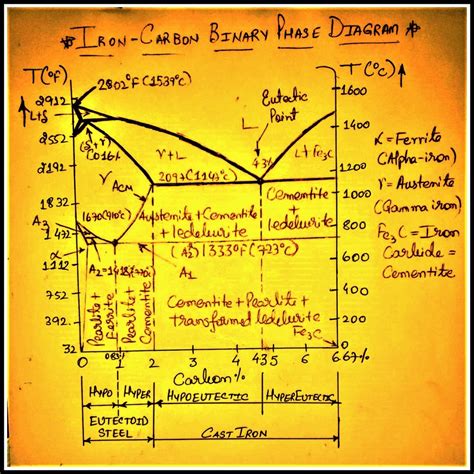 * IRON-CARBON BINARY PHASE DIAGRAM *
T(°F)
T(°C)
2802°F(1539°C)
2912
L+δ
2552
2192
1832
1472
1112
752
392
32
1600
1400
1200
1000
800
600
400
200
0
Eutectic
Point
L
4.3%
L+Fe3C
(δ+γ)
γ+L
2097(1143°C)
γ
ACM
A3
1670(910°C)
Austenite+Cementite
+ledeburite
Cementite
+
ledeburite
(A2)1333°F(723°C)
α
A1
Pearlite+
Ferrite
Pearlite+
Cementite
Cementite+Pearlite+
transformed ledeburite
Fe3C
α=Ferrite
(Alpha-iron)
γ=Austenite
(Gamma iron)
Fe3C=Iron
Carbide=
Cementite
0
1
2
3
4
5
6
6.67%
Carbon%
HYPO
HYPER
HYPOEUTECTIC
HYPEREUTECTIC
EUTECTOID
STEEL
CAST IRON